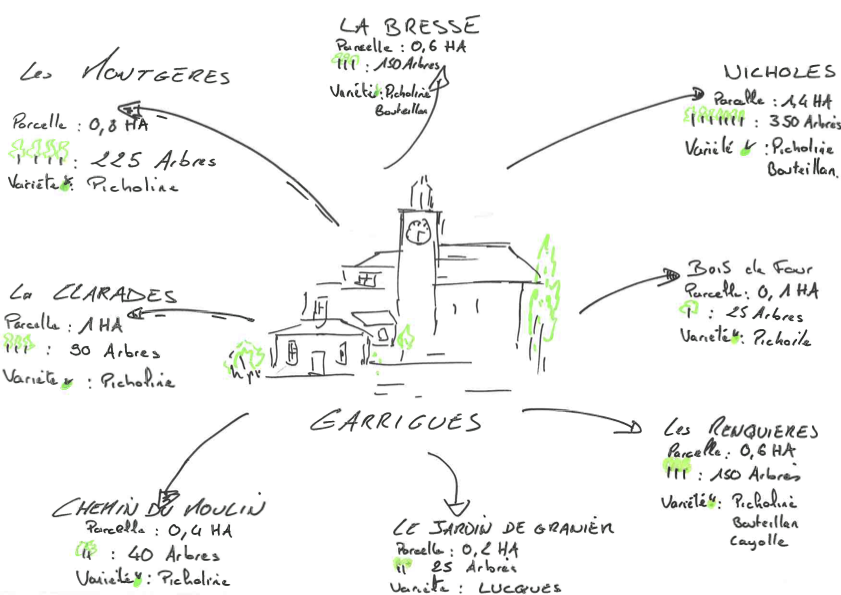 LA BRESSE
Parcelle : 0,6 HA
: 150 Arbres
Variété : Picholine
Bouteillan
Les MONTGÈRES
Parcelle : 0,8 HA
: 225 Arbres
Variété : Picholine
NICHOLES
Parcelle : 1,4 HA
: 350 Arbres
Variété : Picholine
Bouteillan.
La CLARADES
Parcelle : 1 HA
: 90 Arbres
Variété : Picholine
BOIS de Four
Parcelle : 0,1 HA
: 25 Arbres
Variété : Picholine
GARRIGUES
Les RENQUIERES
Parcelle : 0,6 HA
: 150 Arbres
Variété : Picholine
Bouteillan
Cayolle
CHEMIN DU MOULIN
Parcelle : 0,4 HA
: 40 Arbres
Variété : Picholine
LE JARDIN DE GRANIER
Parcelle : 0,2 HA
25 Arbres
Variété : LUCQUES